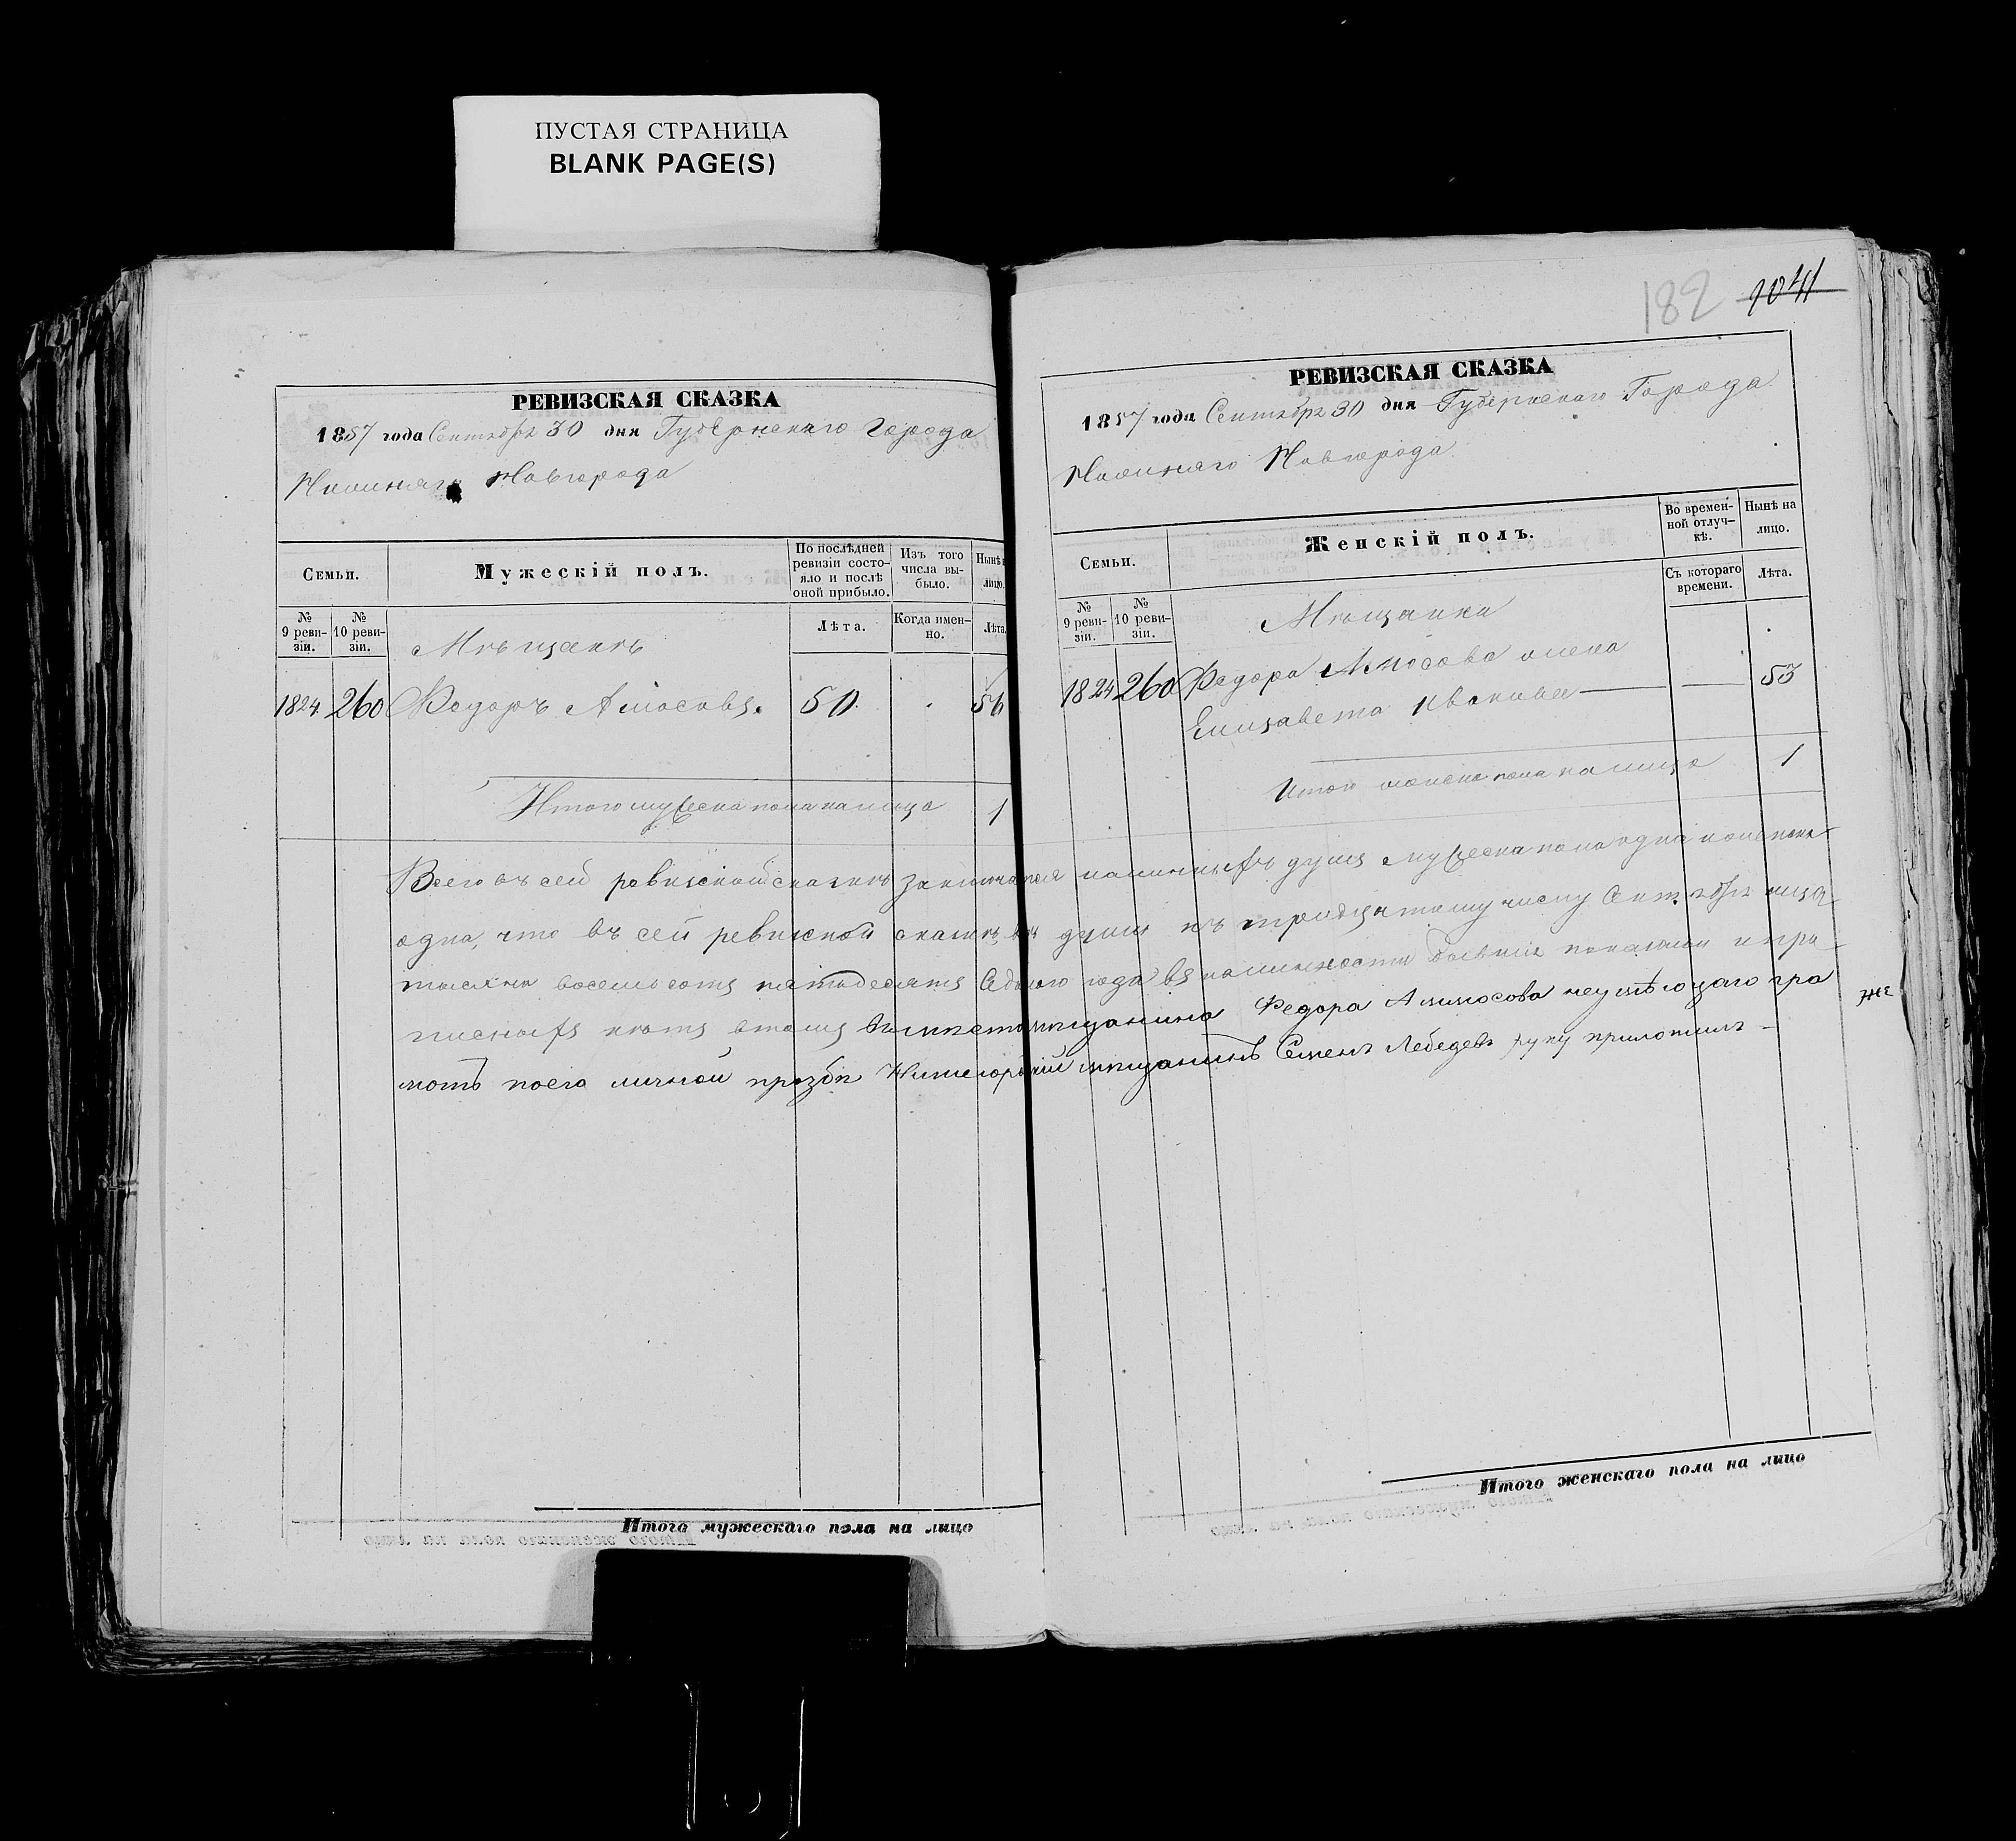 ПУСТАЯ СТРАНИЦА
BLANK PAGE(S)
РЕВИЗСКАЯ СКАЗКА
1857 года Сентября 30 дня Губернскаго Города
Нижняго Новгорода
Семьи.
Мужескій полъ.
По послѣдней ревизіи состо-
яло и послѣ
оной прибыло.
Изъ того
числа вы-
было.
Нынѣ
лицо.
№
9 реви-
зіи.
№
10 реви-
зіи.
Мѣщанѣ
Лѣта.
Когда имен-
но.
Лѣта.
1824 260 Федоръ Амосовъ. 50. 56
Итого мужеска пола на лицо 1
182 1041
РЕВИЗСКАЯ СКАЗКА
1857 года Сентября 30 дня Губернскаго Города
Нижняго Новгорода
Семьи.
Женскій полъ.
Во времен-
ной отлуч-
кѣ.
Нынѣ на
лицо.
№
9 реви-
зіи.
№
10 реви-
зіи.
Мѣщанка
Съ котораго
времени.
Лѣта.
1824 260 Федора Амосова жена
Елизавета Иванова 53
Итого женска пола на лицо 1
Всего въ сей ревизской сказкѣ заключается наличныхъ душъ мужеска пола одна женска
одна, что въ сей ревизской сказкѣ всѣ души къ тридцатому числу Сентября
тысяча восемьсотъ пятьдесятъ Седьмого года въ наличности бывшіе показаны и про
писныхъ нѣтъ втомъ вмѣсто мѣщанина Федора Амосова неумѣющаго гра
мотѣ поего личной прозбѣ Нижегородскій мѣщанинъ Семенъ Лебедевъ руку приложилъ
Итого мужескаго пола на лицо
Итого женскаго пола на лицо